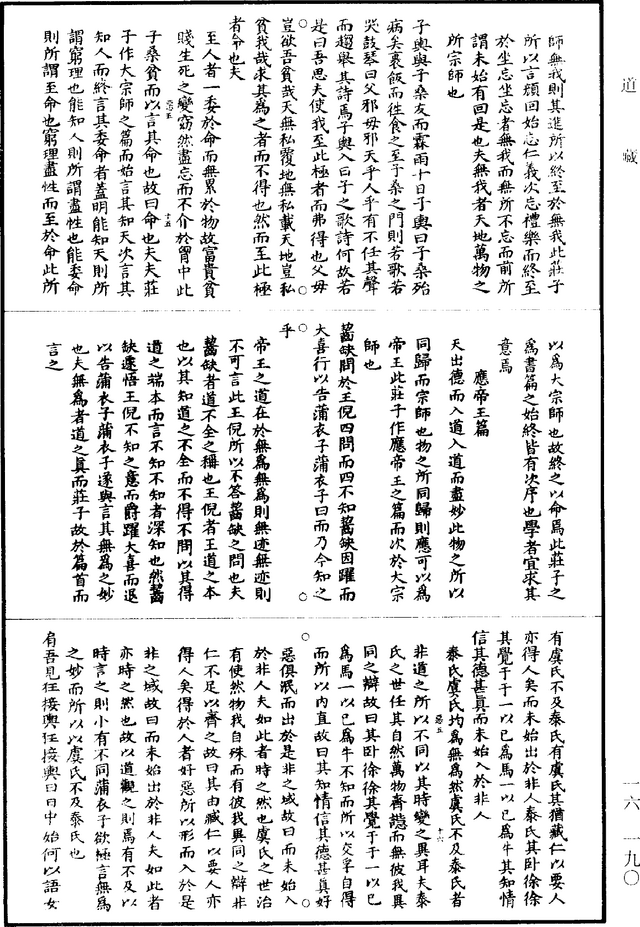 道藏
師無我則其進所以終至於無我此莊子
所以言顏回始忘仁義次忘禮樂而終至
於坐忘坐忘者無我而無所不忘而前所
謂未始有回是也夫無我者天地萬物之
所宗師也
子輿與子桑友而霖雨十日子輿曰子桑殆
病矣裹飯而往食之至子桑之門則若歌若
哭鼓琴曰父邪母邪天乎人乎有不任其聲
而趨舉其詩焉子輿入曰子之歌詩何故若
是曰吾思夫使我至此極者而弗得也父母
豈欲吾貧哉天無私覆地無私載天地豈私
貧我哉求其為之者而不得也然而至此極
者命也夫
至人者一委於命而無累於物故富貴貧
賤生死之變窈然盡忘而不介於胷中此
子桑貧而以言其命也故曰命也夫夫莊
十五
子作大宗師之篇而始言其知天次言其
知人而終言其委命者蓋明能知天則所
謂窮理也能知人則所謂盡性也能委命
則所謂至命也窮理盡性而至於命此所
以為大宗師也故終之以命焉此莊子之
為書篇之始終皆有次序也學者宜求其
意焉
應帝王篇
天出德而入道入道而盡妙此物之所以
同歸而宗師也物之所同歸則應可以為
帝王此莊子作應帝王之篇而次於大宗
師也
齧缺問於王倪四問而四不知齧缺因躍而
大喜行以告蒲衣子蒲衣子曰而乃今知之
乎
帝王之道在於無為無為則無迹無迹則
不可言此王倪所以不答齧缺之問也夫
齧缺者道不全之稱也王倪者王道之本
也以其知道之不全而不得不問以其得
道之端本而言不知不知者深知也然齧
缺遽悟王倪不知之意而爵躍大喜而退
以告蒲衣子蒲衣子遂與言其無為之妙
也夫無為者道之真而莊子故於篇首而
言之
有虞氏不及泰氏有虞氏其猶藏仁以要人
亦得人矣而未始出於非人泰氏其卧徐徐
其覺于于一以已為馬一以已為牛其知情
信其德甚真而未始入於非人
泰氏虞氏均為無為然虞氏不及泰氏者
十六
非道之所以不同以其時變之異耳夫泰
氏之世任其自然萬物齊諧而無彼我異
同之辯故曰其卧徐徐其覺于于一以已
為馬一以已為牛不知而所以交孚自得
而所以內直故曰其知情信其德甚真好
惡俱泯而出於是非之域故曰而未始入
於非人夫如此者時之然也虞氏之世治
有使然物我自殊而有彼我異同之辯非
仁不足以齊之故曰其由臧仁以要人亦
得人矣得於人者好惡所以形而入於是
非之域故曰而未始出於非人夫如此者
亦時之然也故以道觀之則焉有不及以
時言之則小有不同蒲衣子欲極言無為
之妙而所以以虞氏不及泰氏也
肩吾見狂接輿狂接輿曰日中始何以語女
一六一九〇